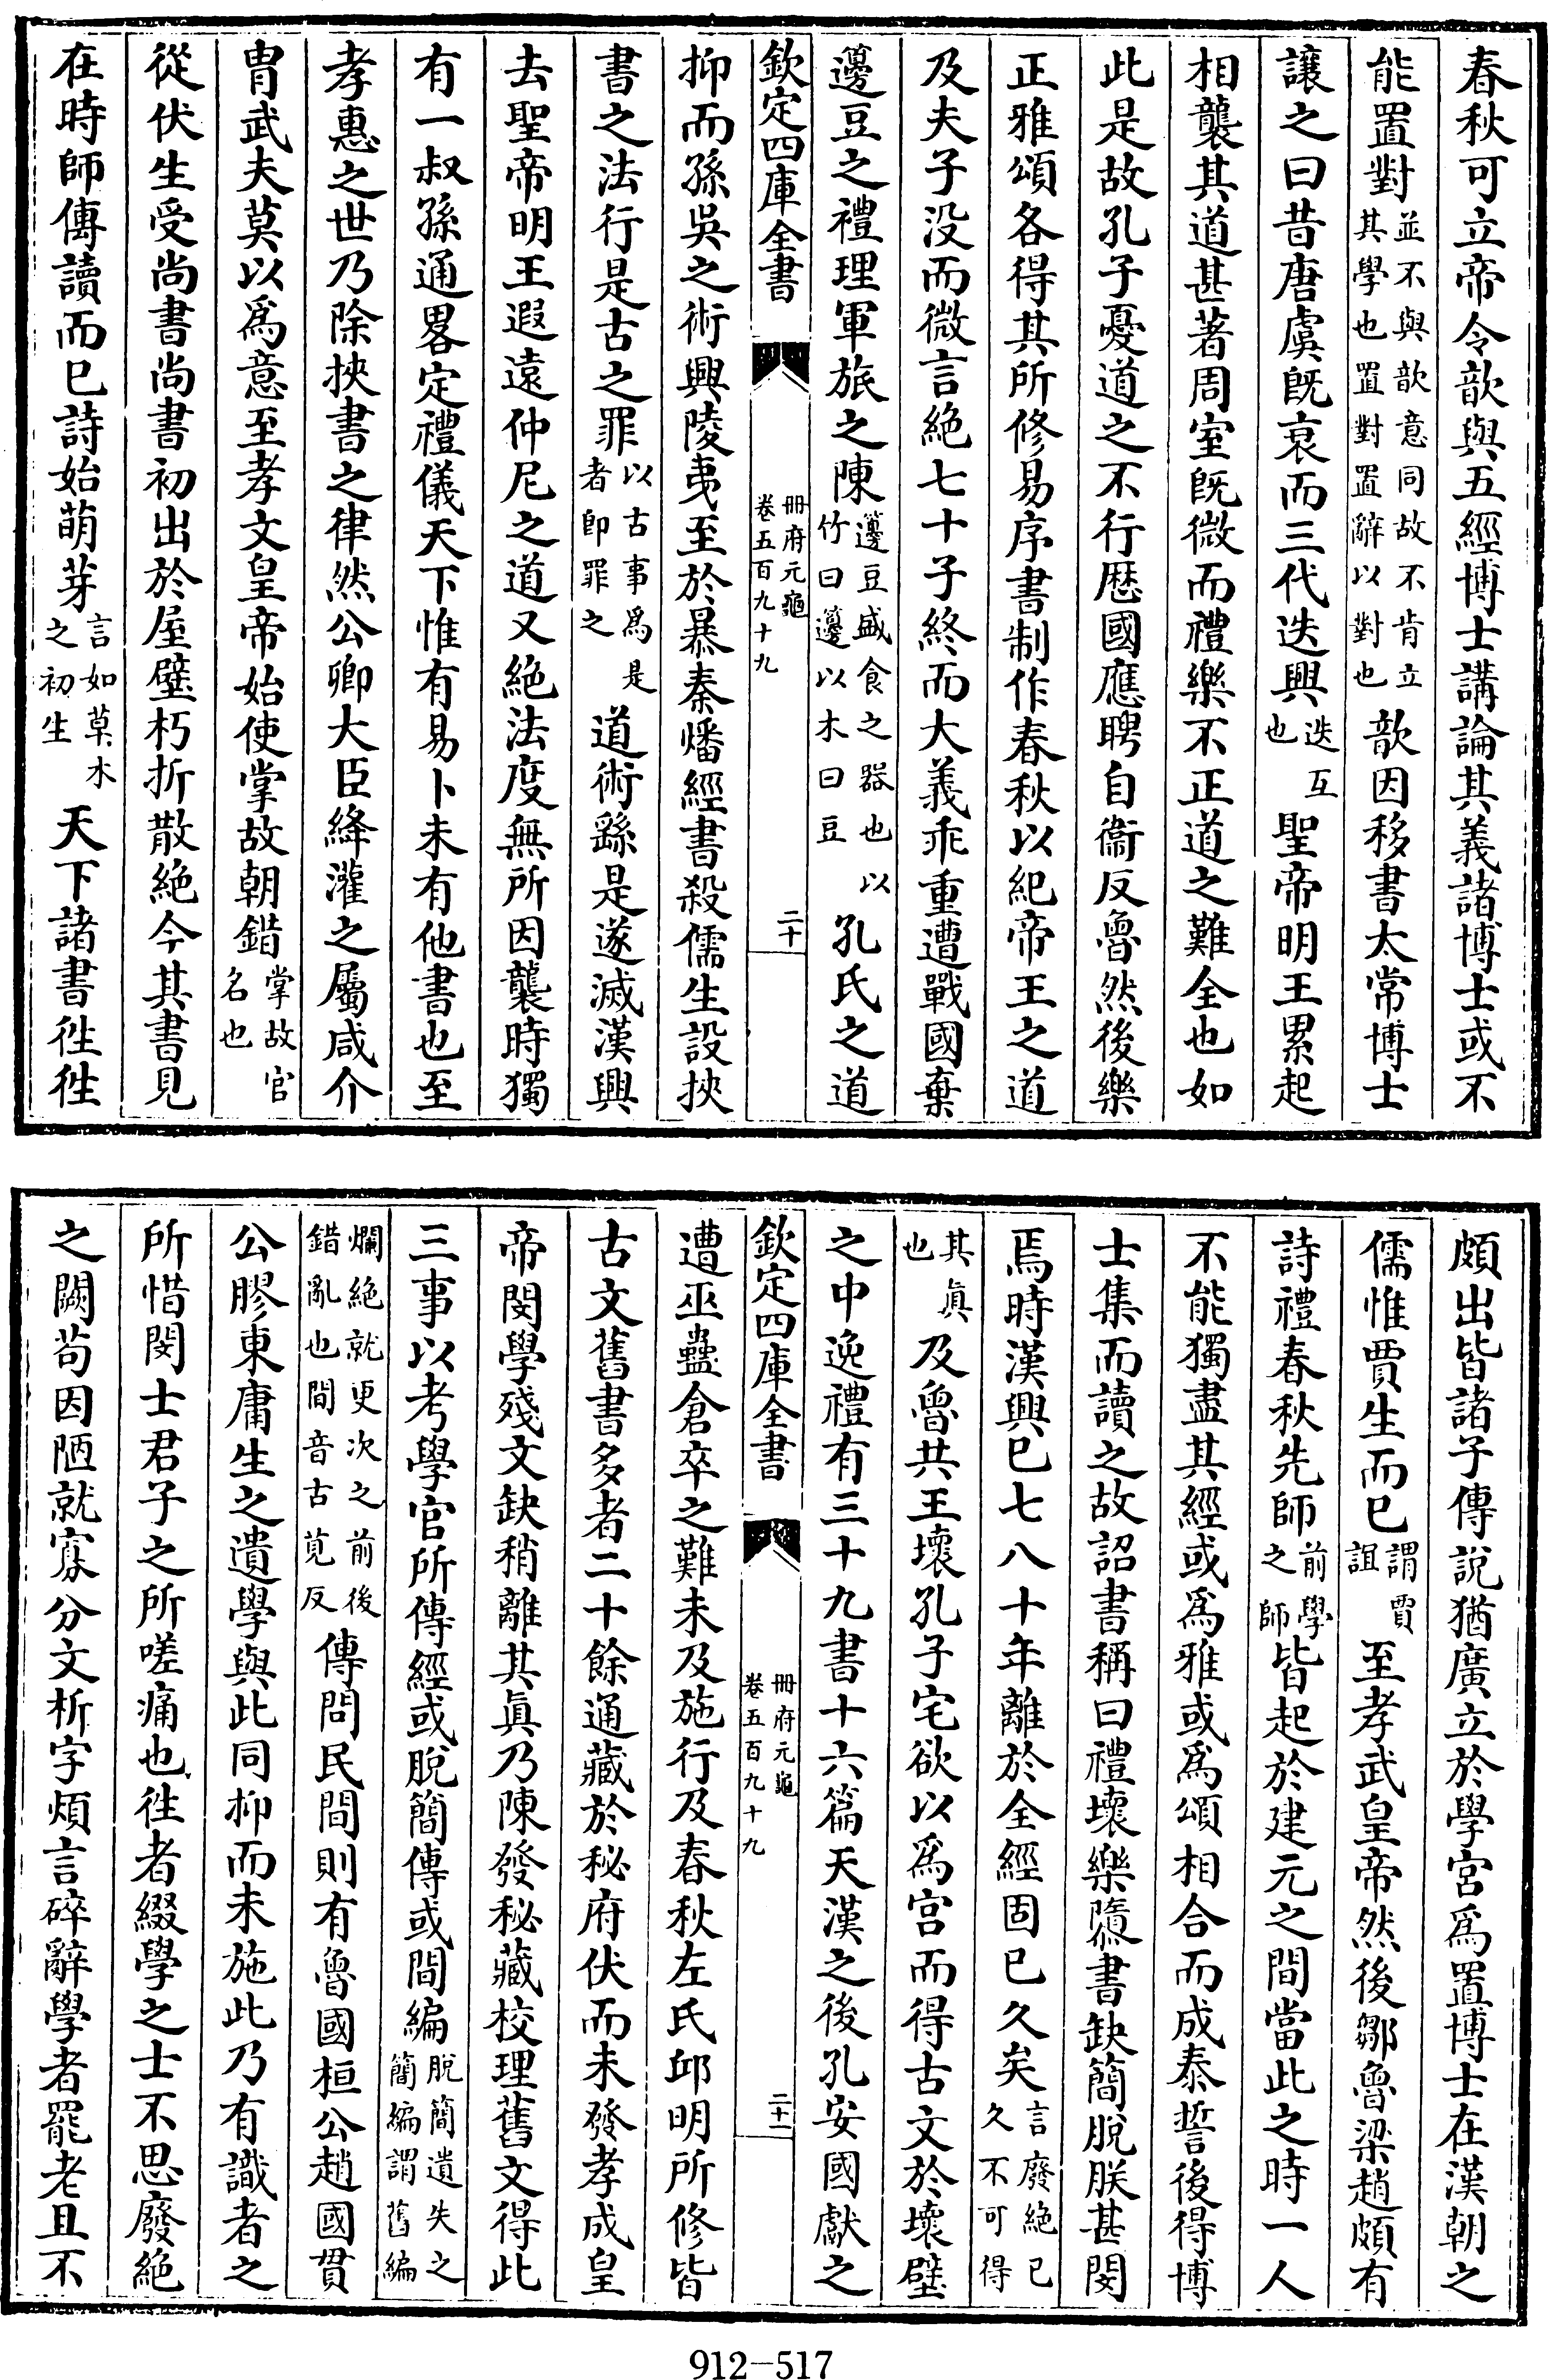 春秋可立帝令歆與五經博士講論其義諸博士或不
能置對並不與歆意同故不肯立其學也置對置辭以對也歆因移書太常博士
讓之曰昔唐虞旣衰而三代迭興迭互也聖帝明王累起
相襲其道甚著周室旣微而禮樂不正道之難全也如
此是故孔子憂道之不行歴國應聘自衞反魯然後樂
正雅頌各得其所修易序書制作春秋以紀帝王之道
及夫子没而微言絶七十子終而大義乖重遭戰國棄
籩豆之禮理軍旅之陳籩豆盛食之器也以竹曰籩以木曰豆孔氏之道
欽定四庫全書
冊府元龜
卷五百九十九
二十
抑而孫吳之術興陵夷至於暴秦燔經書殺儒生設挾
書之法行是古之罪以古事爲是者卽罪之道術繇是遂滅漢興
去聖帝明王遐遠仲尼之道又絶法度無所因襲時獨
有一叔孫通畧定禮儀天下惟有易卜未有他書也至
孝惠之世乃除挾書之律然公卿大臣絳灌之屬咸介
胄武夫莫以爲意至孝文皇帝始使掌故朝錯掌故官名也
從伏生受尚書尚書初出於屋壁朽折散絶今其書見
在時師傳讀而已詩始萌芽言如草木之初生天下諸書徃徃
頗出皆諸子傳說猶廣立於學宮爲置博士在漢朝之
儒惟賈生而已謂賈誼至孝武皇帝然後鄒魯梁趙頗有
詩禮春秋先師前學之師皆起於建元之間當此之時一人
不能獨盡其經或爲雅或爲頌相合而成泰誓後得博
士集而讀之故詔書稱曰禮壞樂隳書缺簡脫朕甚閔
焉時漢興已七八十年離於全經固已久矣言廢絶已久不可得
其眞也及魯共王壞孔子宅欲以爲宮而得古文於壞壁
之中逸禮有三十九書十六篇天漢之後孔安國獻之
欽定四庫全書
冊府元龜
卷五百九十九
二十一
遭巫蠱倉卒之難未及施行及春秋左氏邱明所修皆
古文舊書多者二十餘通藏於秘府伏而未發孝成皇
帝閔學殘文缺稍離其眞乃陳發秘藏校理舊文得此
三事以考學官所傳經或脫簡傳或間編脫簡遺失之簡編謂舊編
爛絶就更次之前後錯亂也間音古莧反傳問民間則有魯國桓公趙國貫
公膠東庸生之遺學與此同抑而未施此乃有識者之
所惜閔士君子之所嗟痛也徃者綴學之士不思廢絶
之闕苟因陋就寡分文析字煩言碎辭學者罷老且不
912-517